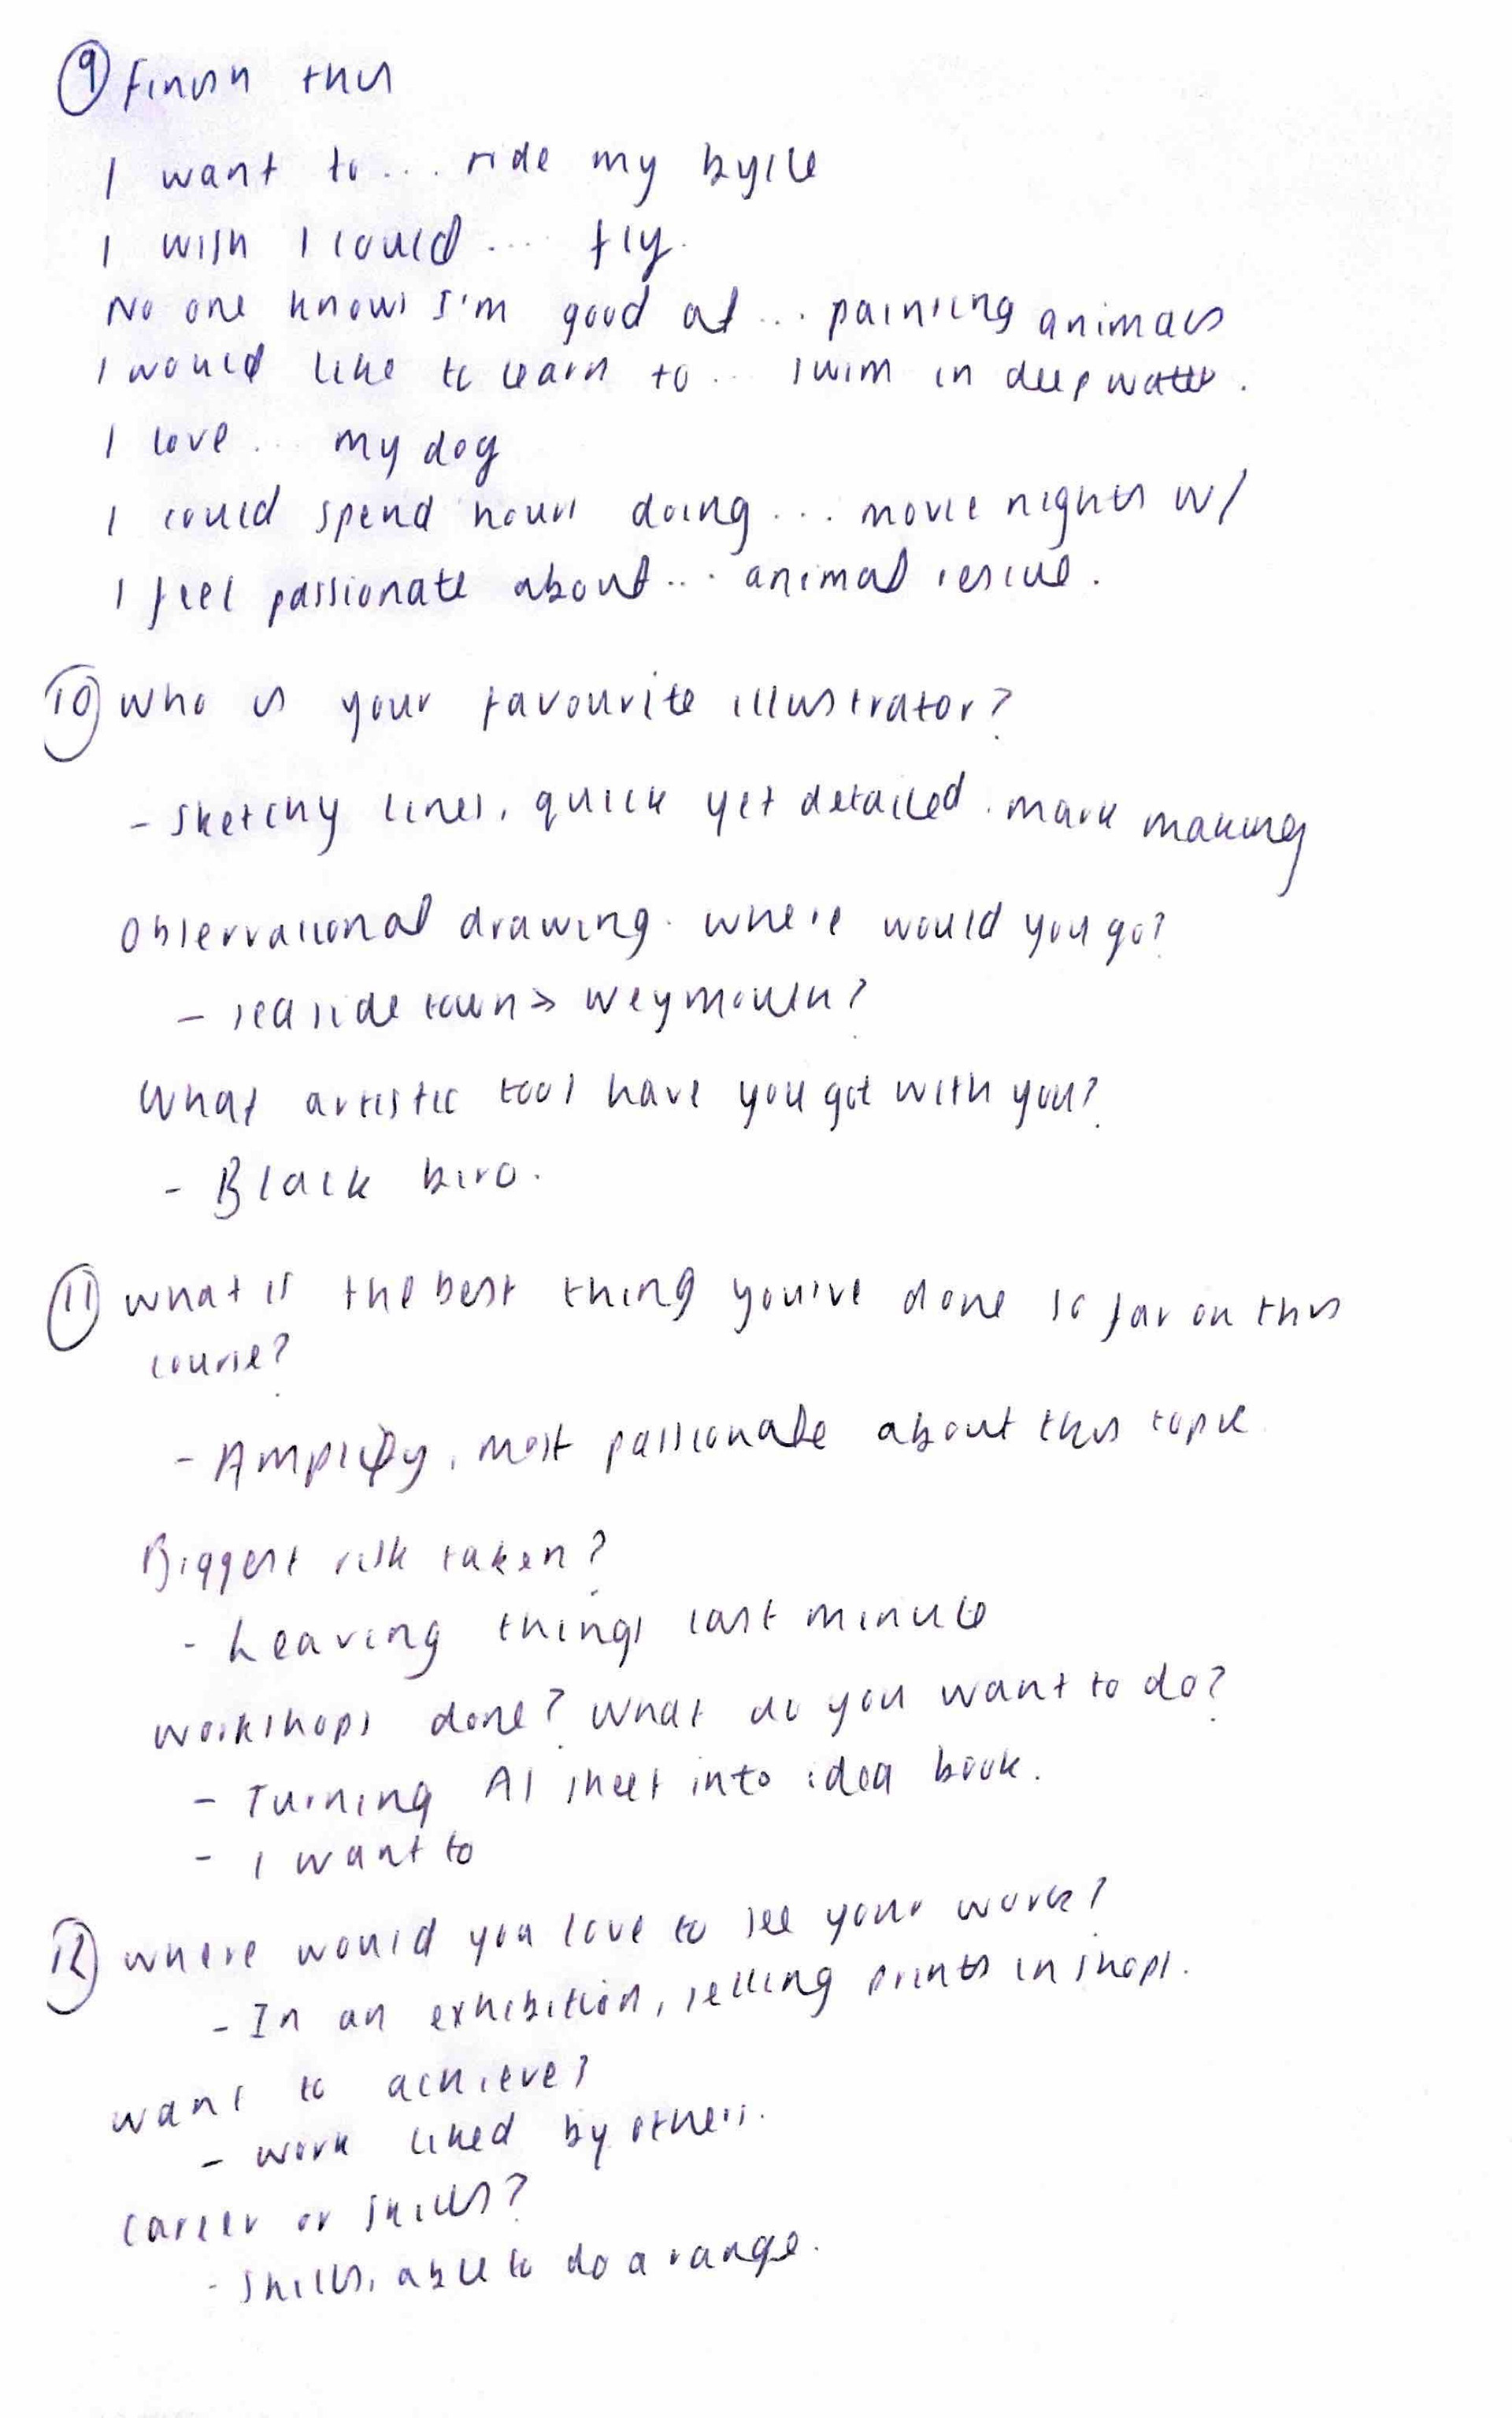 ⑨ Finish this
I want to... ride my bycle
I wish I could.... fly.
No one knows I'm good at... painting animals
I would like to learn to... swim in deep water.
I love... my dog
I could spend hours doing... movie nights w/
I feel passionate about... animal rescue.
⑩ Who is your favourite illustrator?
- Sketchy lines, quick yet detailed. mark making
Observational drawing. Where would you go?
- seaside town > Weymouth?
What artistic tool have you got with you?
- Black biro.
⑪ What is the best thing you've done so far on this
course?
- Amplify, most passionate about this topic.
Biggest risk taken?
- Leaving things last minute
Workshops done? What do you want to do?
- Turning A1 sheet into idea book.
- I want to
⑫ Where would you love to see your work?
- In an exhibition, selling prints in shops.
want to achieve?
- work liked by others.
career or skills?
- skills, able to do a range.